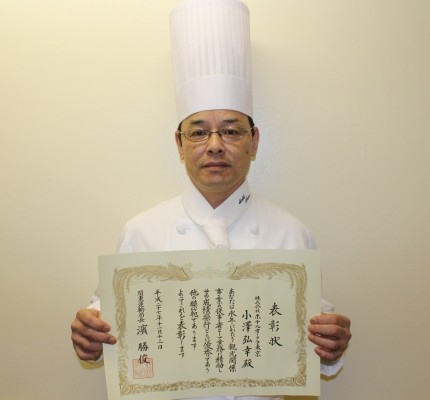 表彰状
株式会社ホテルオークラ東京
小澤弘幸殿
あなたは永年にわたり観光関係
事業の従事者として業務に精励し
その成績優秀であり
他の模範であります
よってこれを表彰します
平成二十七年十一月十三日
関東運輸局長
濱 勝俊